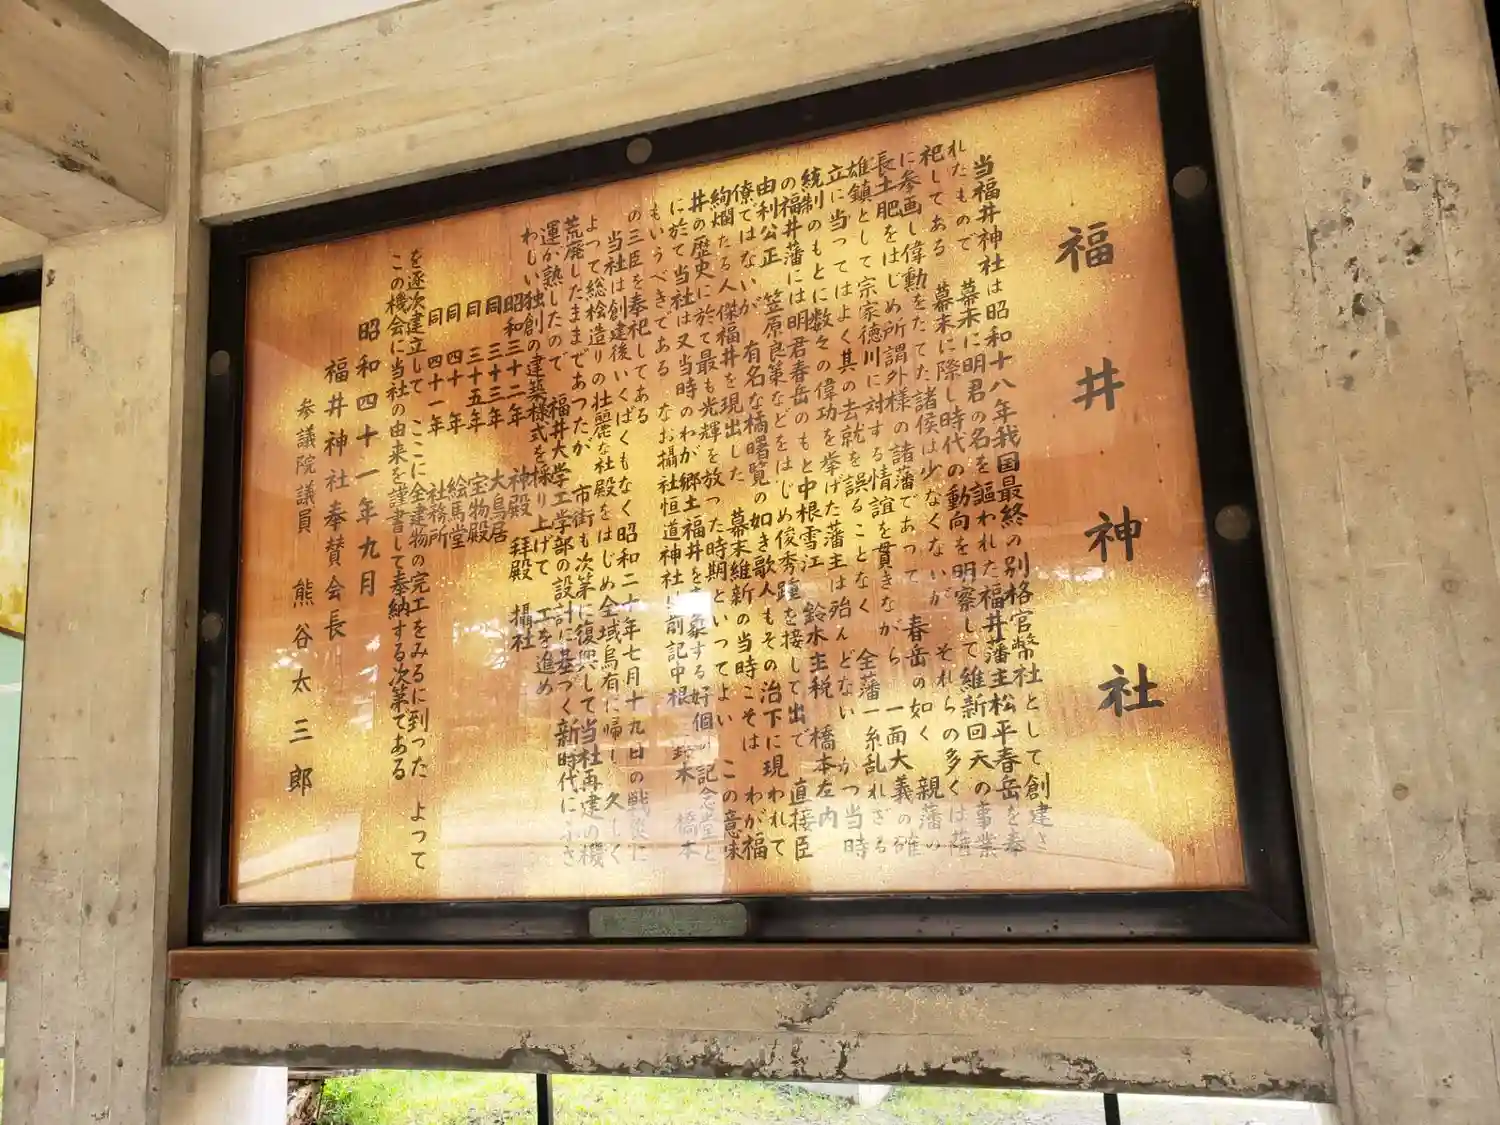 福井神社
当福井神社は昭和十八年我国最終の別格官幣社として創建さ
れたもので 幕末に明君の名を謳われた福井藩主松平春岳を奉
祀してある 幕末に際し時代の動向を明察して維新回天の事業
に参画し偉勲をたてた諸侯は少なくないが それらの多くは薩
長土肥をはじめ所謂外様の諸藩であって 春岳の如く 親藩の
雄鎮として宗家徳川に対する情誼を貫きながら 一面大義の確
立に当ってはよく其の去就を誤ることなく 全藩一糸乱れざる
統制のもとに数々の偉功を挙げた藩主は殆んどない かつ当時
の福井藩には明君春岳のもと中根雪江 鈴木主税 橋本左内
由利公正 笠原良策などをはじめ俊秀踵を接して出で 直接臣
僚ではないが 有名な橘曙覧の如き歌人もその治下に現われて
絢爛たる人傑福井を現出した 幕末維新の当時こそは わが福
井の歴史に於て最も光輝を放った時期といってよい この意味
に於て当社は又当時のわが郷土福井を象する好個の記念堂と
もいうべきである なお攝社恒道神社は前記中根 鈴木 橋本
の三臣を奉祀してある
当社は創建後いくばくもなく昭和二十年七月十九日の戦災に
よって総桧造りの壮麗な社殿をはじめ全域烏有に帰し久しく
荒廃したままであつたが 市街も次第に復興して当社再建の機
運が熟したので 福井大学工学部の設計に基づく新時代にふさ
わしい独創の建築様式を採り上げて 工を進め
昭和三十二年 神殿 拝殿 攝社
同 三十三年 大鳥居
同 三十五年 宝物殿
同 四十年 絵馬堂
同 四十一年 社務所
を逐次建立して ここに全建物の完工をみるに到った よって
この機会に当社の由来を謹書して奉納する次第である
昭和四十一年九月
福井神社奉賛会長
参議院議員 熊谷太三郎